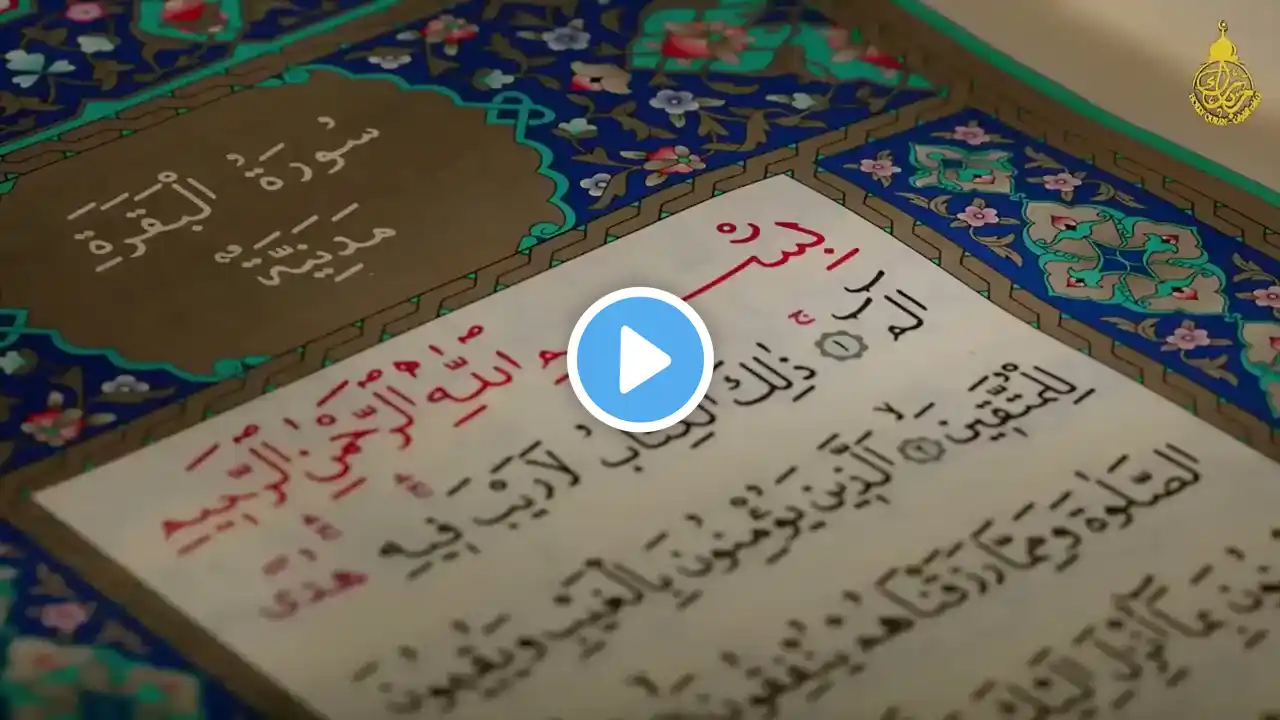 سُورَةُ الْبَقَرَةِ
مَدَنِيَّةٌ
بِسْمِ اللّٰهِ الرَّحْمٰنِ الرَّحِيمِ
الٓمٓ ۝١ ذٰلِكَ الْكِتَابُ لَا رَيْبَ فِيهِ هُدًى
لِلْمُتَّقِينَ ۝٢ الَّذِينَ يُؤْمِنُونَ بِالْغَيْبِ وَيُقِيمُونَ
الصَّلٰوةَ وَمِمَّا رَزَقْنَاهُمْ يُنْفِقُونَ
بِمَا أُنْزِلَ إِلَيْكَ